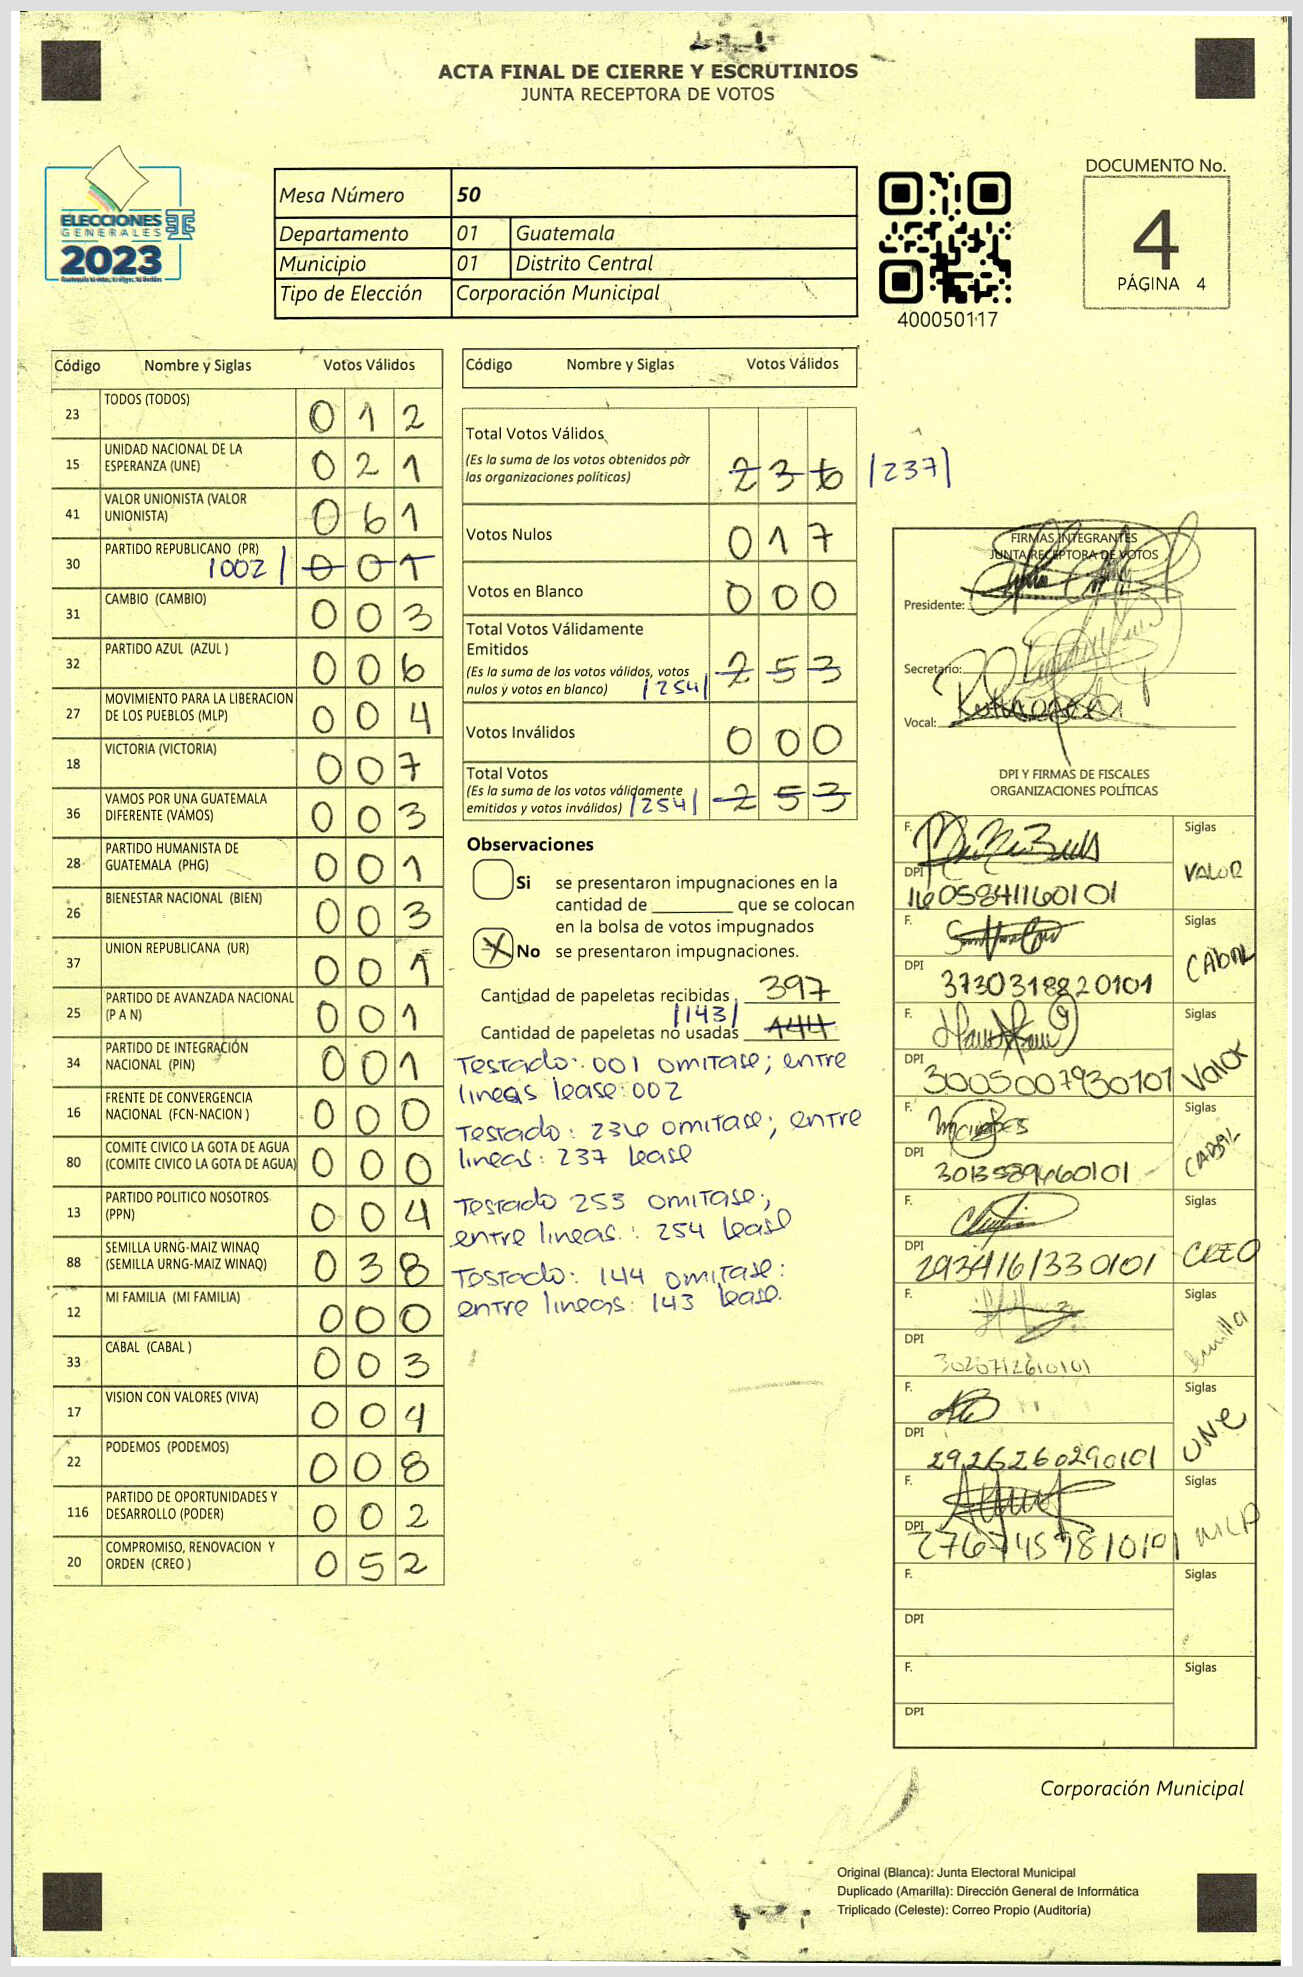 ACTA FINAL DE CIERRE Y ESCRUTINIOS
JUNTA RECEPTORA DE VOTOS
ELECCIONES
GENERALES
2023
Mesa Número 50
Departamento 01 Guatemala
Municipio 01 Distrito Central
Tipo de Elección Corporación Municipal
400050117
DOCUMENTO No.
4
PÁGINA 4
Código Nombre y Siglas Votos Válidos
23 TODOS (TODOS) 0 1 2
15 UNIDAD NACIONAL DE LA ESPERANZA (UNE) 0 2 1
41 VALOR UNIONISTA (VALOR UNIONISTA) 0 6 1
30 PARTIDO REPUBLICANO (PR) |002| 0 0 1
31 CAMBIO (CAMBIO) 0 0 3
32 PARTIDO AZUL (AZUL ) 0 0 6
27 MOVIMIENTO PARA LA LIBERACION DE LOS PUEBLOS (MLP) 0 0 4
18 VICTORIA (VICTORIA) 0 0 7
36 VAMOS POR UNA GUATEMALA DIFERENTE (VAMOS) 0 0 3
28 PARTIDO HUMANISTA DE GUATEMALA (PHG) 0 0 1
26 BIENESTAR NACIONAL (BIEN) 0 0 3
37 UNION REPUBLICANA (UR) 0 0 1
25 PARTIDO DE AVANZADA NACIONAL (P A N) 0 0 1
34 PARTIDO DE INTEGRACIÓN NACIONAL (PIN) 0 0 1
16 FRENTE DE CONVERGENCIA NACIONAL (FCN-NACION ) 0 0 0
80 COMITE CIVICO LA GOTA DE AGUA (COMITE CIVICO LA GOTA DE AGUA) 0 0 0
13 PARTIDO POLITICO NOSOTROS (PPN) 0 0 4
88 SEMILLA URNG-MAIZ WINAQ (SEMILLA URNG-MAIZ WINAQ) 0 3 8
12 MI FAMILIA (MI FAMILIA) 0 0 0
33 CABAL (CABAL ) 0 0 3
17 VISION CON VALORES (VIVA) 0 0 4
22 PODEMOS (PODEMOS) 0 0 8
116 PARTIDO DE OPORTUNIDADES Y DESARROLLO (PODER) 0 0 2
20 COMPROMISO, RENOVACION Y ORDEN (CREO ) 0 5 2
Código Nombre y Siglas Votos Válidos
Total Votos Válidos
(Es la suma de los votos obtenidos por
las organizaciones políticas) 2 3 6 |237|
Votos Nulos 0 1 7
Votos en Blanco 0 0 0
Total Votos Válidamente
Emitidos
(Es la suma de los votos válidos, votos
nulos y votos en blanco) |254| 2 5 3
Votos Inválidos 0 0 0
Total Votos
(Es la suma de los votos válidamente
emitidos y votos inválidos) |254| 2 5 3
Observaciones
Si se presentaron impugnaciones en la
cantidad de ________ que se colocan
en la bolsa de votos impugnados
X No se presentaron impugnaciones.
Cantidad de papeletas recibidas 397
|143|
Cantidad de papeletas no usadas 144
Testado: 001 omitase; entre
lineas lease: 002
Testado: 236 omitase; entre
lineas: 237 lease
Testado 253 omitase;
entre lineas: 254 lease
Testado: 144 omitase:
entre lineas: 143 lease.
FIRMAS INTEGRANTES
JUNTA RECEPTORA DE VOTOS
Presidente:
Secretario:
Vocal:
DPI Y FIRMAS DE FISCALES
ORGANIZACIONES POLÍTICAS
F. Siglas
DPI 1605841160101 VALOR
F. Siglas
DPI 3730318820101 CABAL
F. Siglas
DPI 3005007930101 Valor
F. Siglas
DPI 3013589660101 CABAL
F. Siglas
DPI 2934161330101 CREO
F. Siglas
DPI 3020712610101 Semilla
F. Siglas
DPI 2926260290101 UNE
F. Siglas
DPI 2767459810101 MLP
F. Siglas
DPI
F. Siglas
DPI
Corporación Municipal
Original (Blanca): Junta Electoral Municipal
Duplicado (Amarilla): Dirección General de Informática
Triplicado (Celeste): Correo Propio (Auditoría)